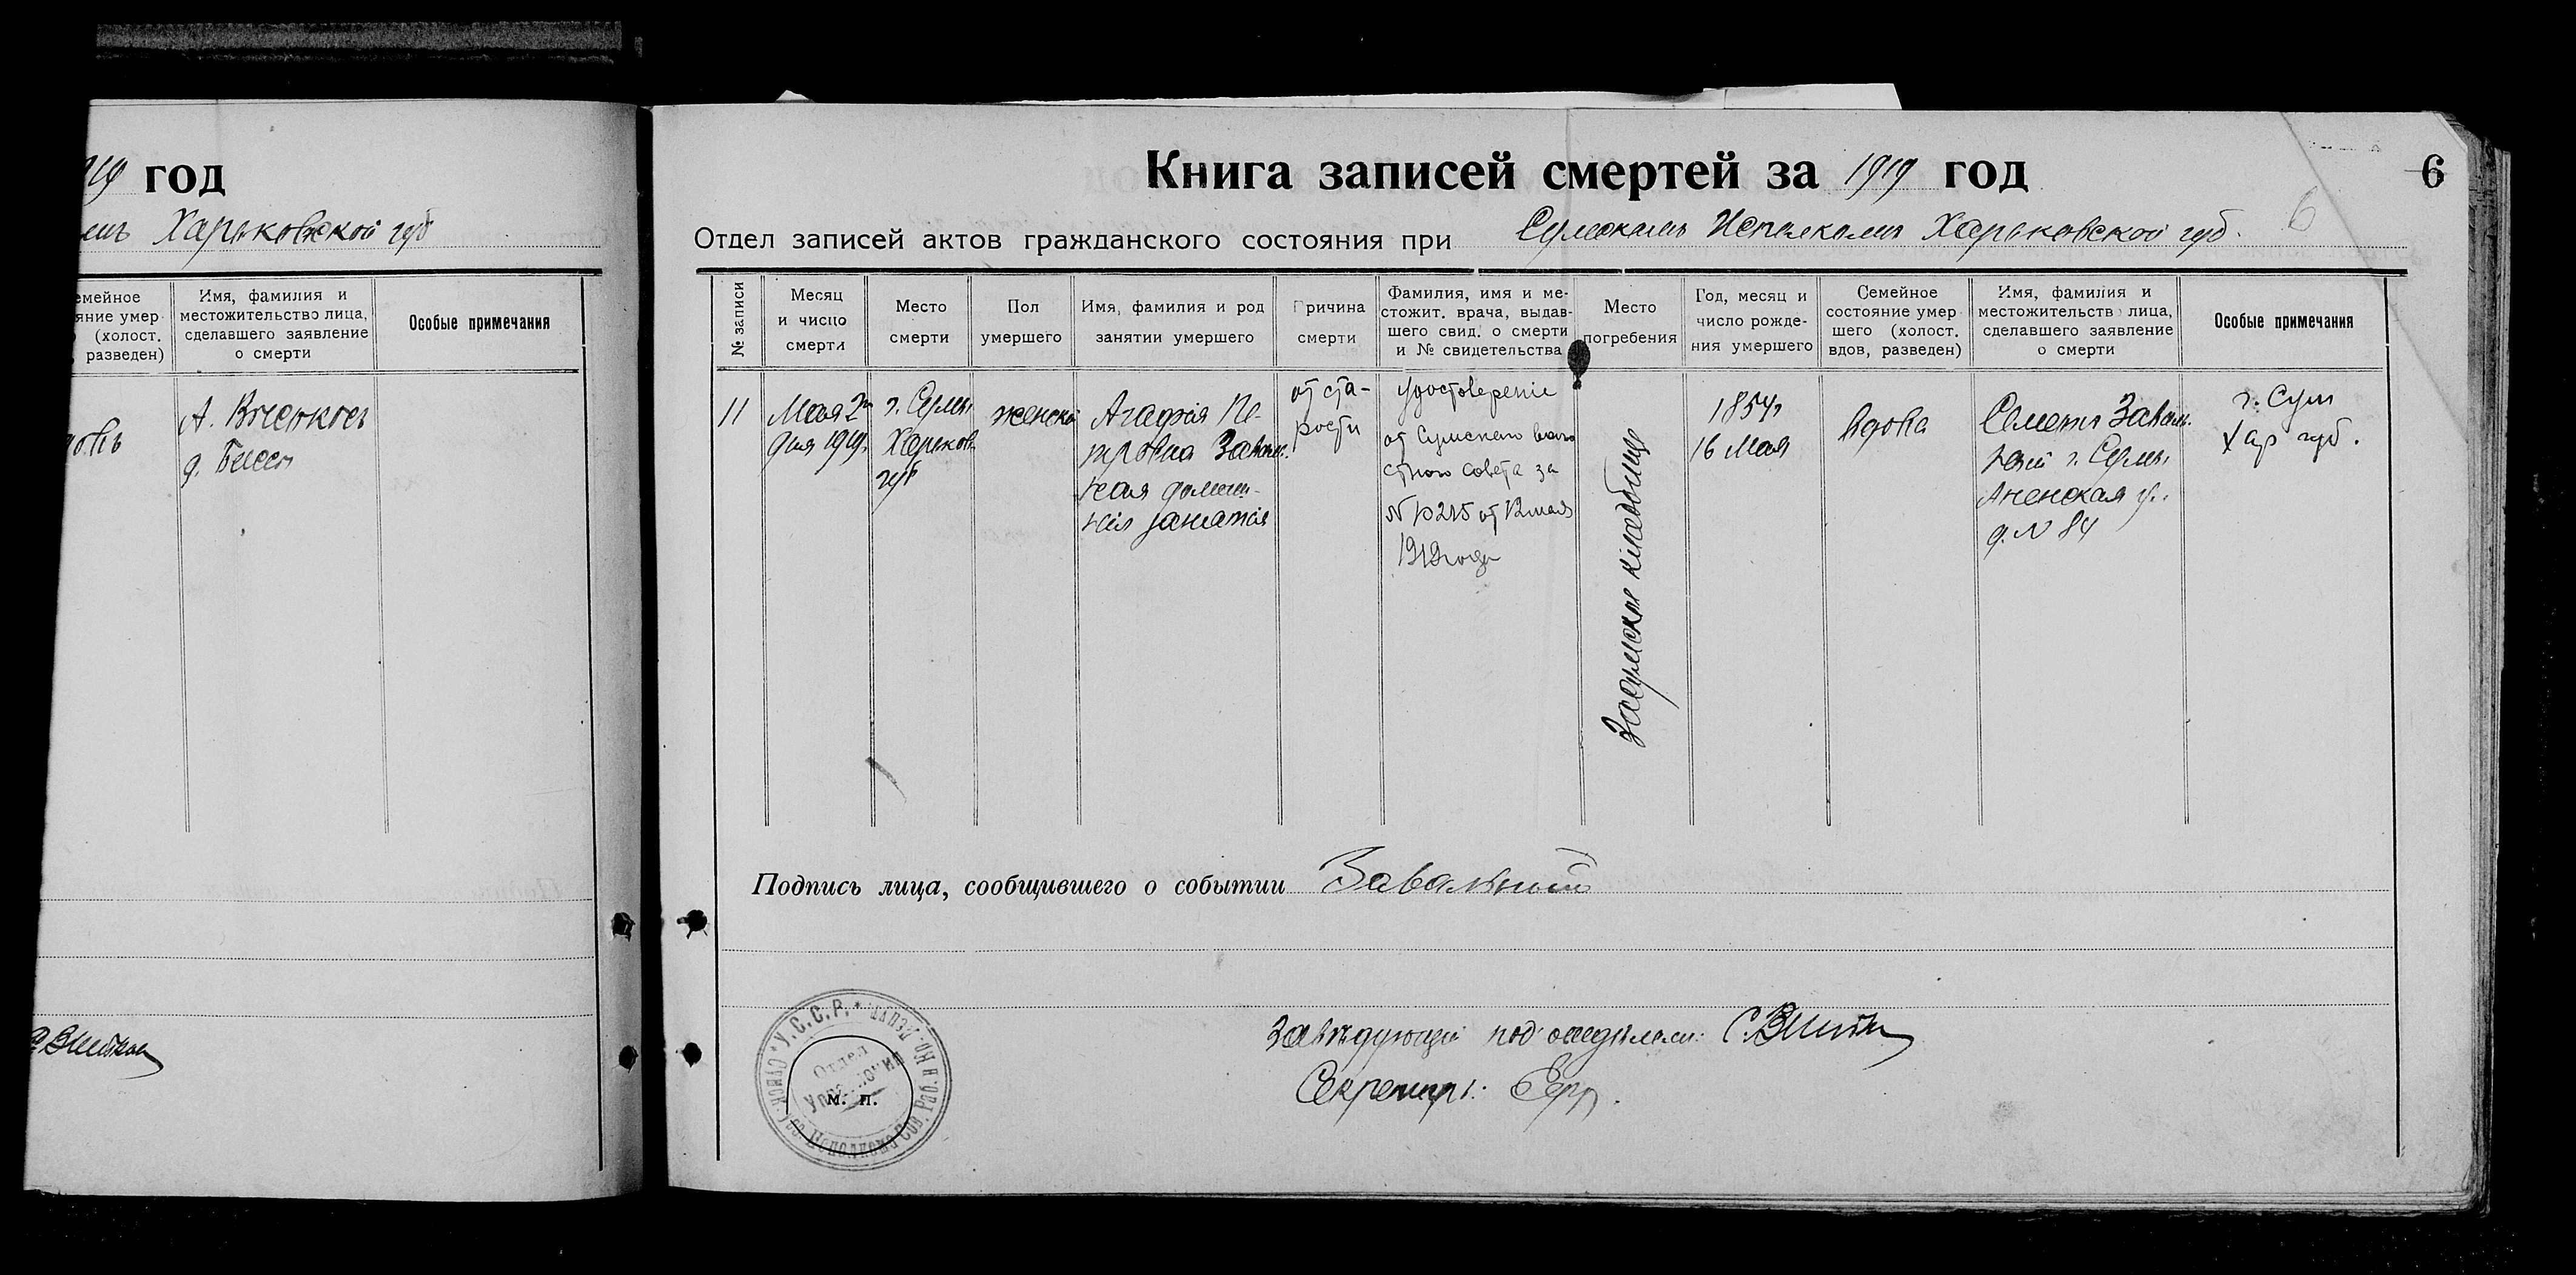 919 год
Харьковской губ
емейное
яние умер
(холост.
разведен)
Имя, фамилия и
местожительство лица,
сделавшего заявление
о смерти
Особые примечания
А.
д.
Книга записей смертей за 1919 год
6
6
Отдел записей актов гражданского состояния при Сумскомъ Исполкомъ Харьковской губ.
№ записи
Месяц
и число
смерти
Место
смерти
Пол
умершего
Имя, фамилия и род
занятии умершего
Причина
смерти
Фамилия, имя и ме-
стожит. врача, выдав-
шего свид. о смерти
и № свидетельства
Место
погребения
Год, месяц и
число рожде-
ния умершего
Семейное
состояние умер
шего (холост.
вдов, разведен)
Имя, фамилия и
местожительство лица,
сделавшего заявление
о смерти
Особые примечания
11
Мая 2го
дня 1919г.
г. Сумы
Харьков.
губ
женскій
Агафія Пе-
тровна Заваль.
ная домаш-
нія занятія
от ста-
рости
Удостоверение
от Сумского воло
стного совета за
N 10215 от 12 мая
1919 года
Засумское кладбище
1854г
16 Мая
вдова
Семенъ Заваль.
ный г. Сумы
д. N 84
г. Сум
Хар губ.
Подпись лица, сообщившего о событии Завальный
Завѣдующій подотдѣломъ:
Секретарь:
У.С.С.Р.
Отдел
Управления
м. п.